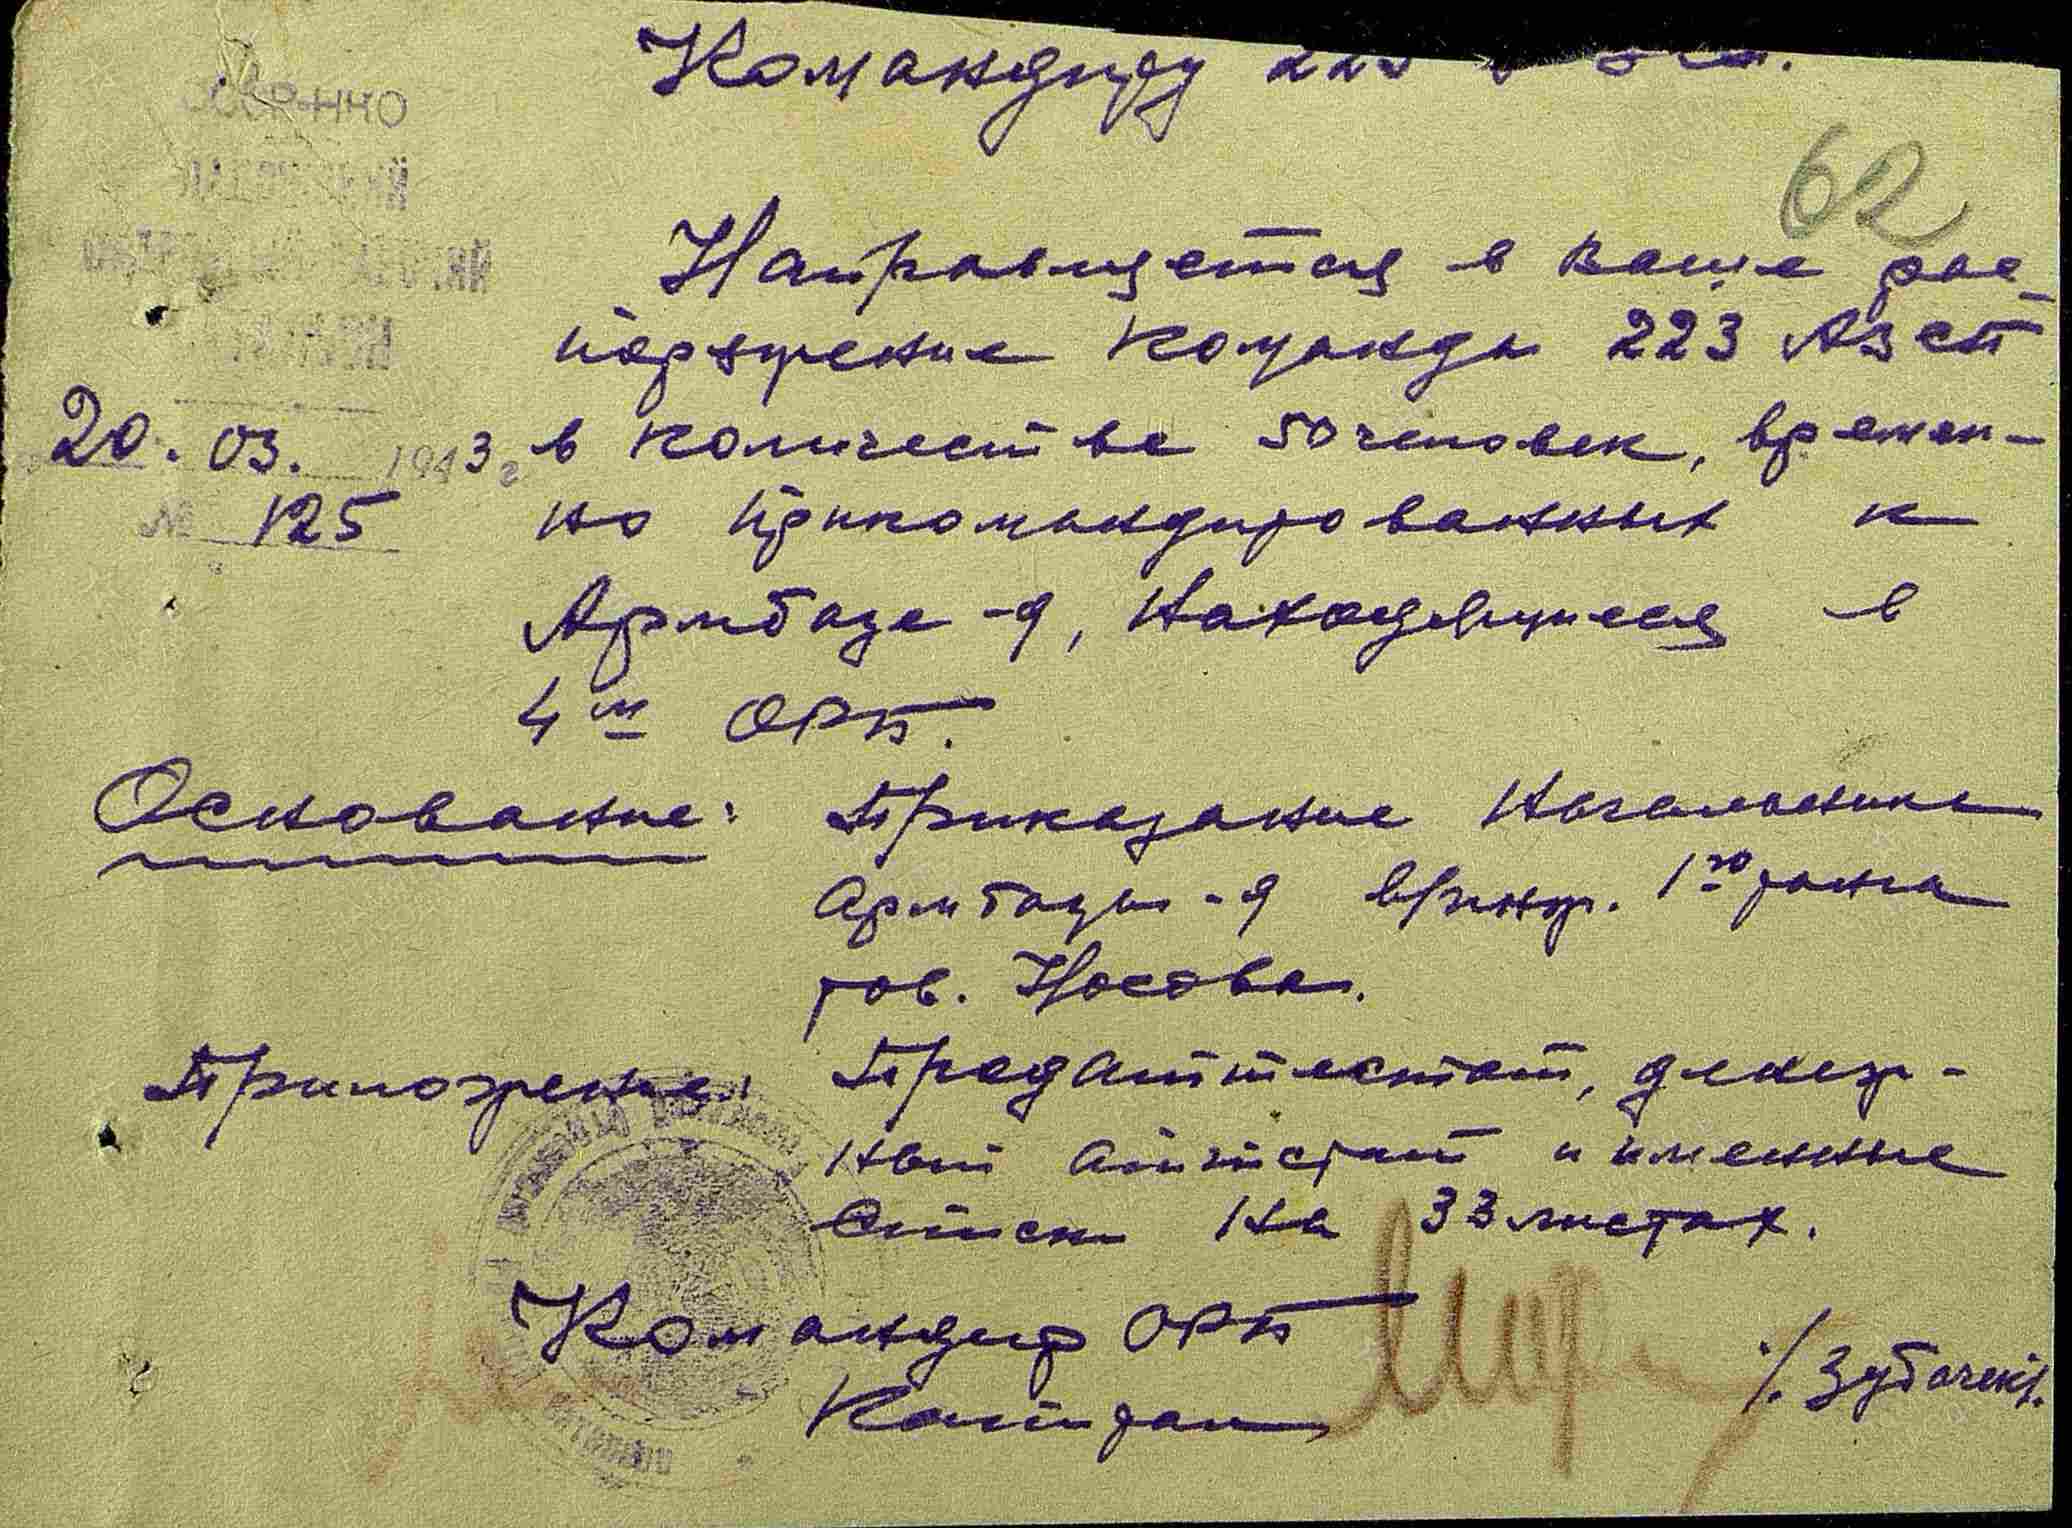 Командиру 223
62
Направляется в Ваше рас-
поряжение команда 223 АЗСП
20.03. 1943 г в количестве 50 человек, времен-
№ 125 но прикомандированных к
Армбазе -9, находящиеся в
4м ОРБ.
Основание: Приказание Начальника
Армбазы -9 1го ранга
тов. Носова.
Приложение: Продаттестат, денеж-
ный аттестат и именные
списки на 33 листах.
Командир ОРБ
Капитан /Зубачек/.